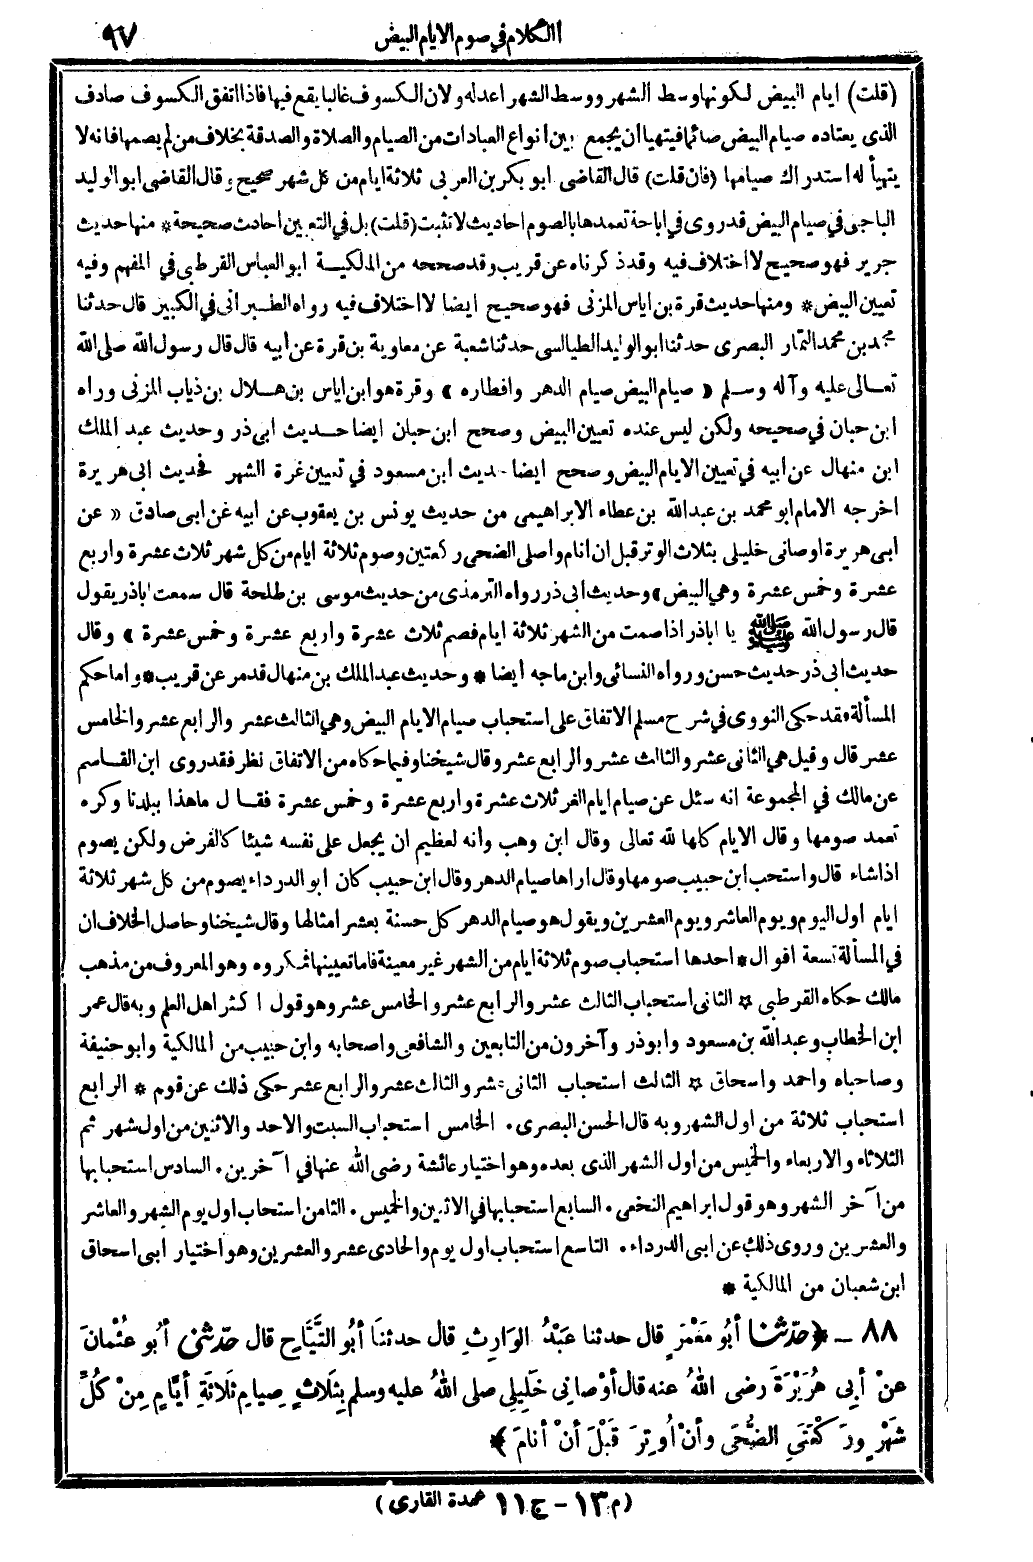 الكلام في صوم الايام البيض ٩٧
(قلت) ايام البيض لكونها وسط الشهر ووسط الشهر اعدله ولان الكسوف غالبا يقع فيها فاذا اتفق الكسوف صادف
الذي يعتاده صيام البيض صائما فيتهيأ أن يجمع بين أنواع العبادات من الصيام والصلاة والصدقة بخلاف من لم يصمها فانه لا
يتهيأ له استدراك صيامها (فان قلت) قال القاضي ابو بكر بن العربي ثلاثة ايام من كل شهر صحيح وقال القاضي ابو الوليد
الباجي في صيام البيض قد روى في اباحة تعمدها بالصوم احاديث لا تثبت (قلت) بل في التعيين احاديث صحيحة * منها حديث
جرير فهو صحيح لا اختلاف فيه وقد ذكرناه عن قريب وقد صححه من المالكية ابو العباس القرطبي في المفهم وفيه
تعيين البيض * ومنها حديث قرة بن اياس المزني فهو صحيح ايضا لا اختلاف فيه رواه الطبراني في الكبير قال حدثنا
محمد بن محمد التمار البصري حدثنا ابو الوليد الطيالسي حدثنا شعبة عن معاوية بن قرة عن أبيه قال قال رسول الله صلى الله
تعالى عليه وآله وسلم « صيام البيض صيام الدهر وافطاره » وقرة هو ابن اياس بن هلال بن ذياب المزني ورواه
ابن حبان في صحيحه ولكن ليس عنده تعيين البيض وصحح ابن حبان ايضا حديث ابي ذر وحديث عبد الملك
ابن منهال عن ابيه في تعيين الايام البيض وصحح ايضا حديث ابن مسعود في تعيين غرة الشهر فحديث ابي هريرة
اخرجه الامام ابو محمد بن عبد الله بن عطاء الابراهيمي من حديث يونس بن يعقوب عن ابيه عن ابى صادق « عن
ابى هريرة اوصاني خليلي بثلاث الوتر قبل ان انام واصلى الضحى ركعتين وصوم ثلاثة ايام من كل شهر ثلاث عشرة واربع
عشرة وخمس عشرة وهي البيض » وحديث ابي ذر رواه الترمذي من حديث موسى بن طلحة قال سمعت اباذر يقول
قال رسول الله ﷺ يا اباذر اذا صمت من الشهر ثلاثة ايام فصم ثلاث عشرة واربع عشرة وخمس عشرة » وقال
حديث ابي ذر حديث حسن ورواه النسائي وابن ماجه ايضا * وحديث عبد الملك بن منهال قد مر عن قريب * واما حكم
المسألة فقد حكى النووي في شرح مسلم الاتفاق على استحباب صيام الايام البيض وهي الثالث عشر والرابع عشر والخامس
عشر قال وقيل هي الثاني عشر والثالث عشر والرابع عشر وقال شيخنا وفيما حكاه من الاتفاق نظر فقد روى ابن القاسم
عن مالك في المجموعة انه سئل عن صيام ايام الغر ثلاث عشرة واربع عشرة وخمس عشرة فقال ما هذا ببلدنا وكره
تعمد صومها وقال الايام كلها لله تعالى وقال ابن وهب وأنه لعظيم ان يجعل على نفسه شيئا كالفرض ولكن يصوم
اذا شاء قال واستحب ابن حبيب صومها وقال اراها صيام الدهر وقال ابن حبيب كان ابو الدرداء يصوم من كل شهر ثلاثة
ايام اول اليوم ويوم العاشر ويوم العشرين ويقول هو صيام الدهر كل حسنة بعشر امثالها وقال شيخنا وحاصل الخلاف ان
في المسألة تسعة اقوال * احدها استحباب صوم ثلاثة ايام من الشهر غير معينة فاما تعيينها فمكروه وهو المعروف من مذهب
مالك حكاه القرطبي * الثاني استحباب الثالث عشر والرابع عشر والخامس عشر وهو قول اكثر اهل العلم وبه قال عمر
ابن الخطاب وعبد الله بن مسعود وابوذر وآخرون من التابعين والشافعي واصحابه وابن حبيب من المالكية وابو حنيفة
وصاحباه واحمد واسحاق * الثالث استحباب الثاني عشر والثالث عشر والرابع عشر حكى ذلك عن قوم * الرابع
استحباب ثلاثة من اول الشهر وبه قال الحسن البصري . الخامس استحباب السبت والاحد والاثنين من اول شهر ثم
الثلاثاء والاربعاء والخميس من اول الشهر الذي بعده وهو اختيار عائشة رضي الله عنها في آخرين . السادس استحبابها
من آخر الشهر وهو قول ابراهيم النخعي . السابع استحبابها في الاثنين والخميس . الثامن استحباب اول يوم الشهر والعاشر
والعشرين وروى ذلك عن ابى الدرداء . التاسع استحباب اول يوم والحادى عشر والعشرين وهو اختيار ابى اسحاق
ابن شعبان من المالكية *
٨٨ - ﴿حدثنا أَبُو مَعْمَرٍ قال حدثنا عَبْدُ الوَارِثِ قال حدثنا أَبُو التَّيَّاحِ قال حدثني أبُو عُثْمانَ
عنْ أبِي هُرَيْرَةَ رضي اللهُ عنه قال أوْصاني خَلِيلي صلى اللهُ عليه وسلم بِثَلاثٍ صِيامِ ثَلاثَةِ أيَّامٍ مِنْ كُلِّ
شَهْرٍ ورَكْعَتَيِ الضُّحَى وأنْ أُوتِرَ قَبْلَ أنْ أنامَ﴾
(م ١٣ - ج ١١ عمدة القارى)